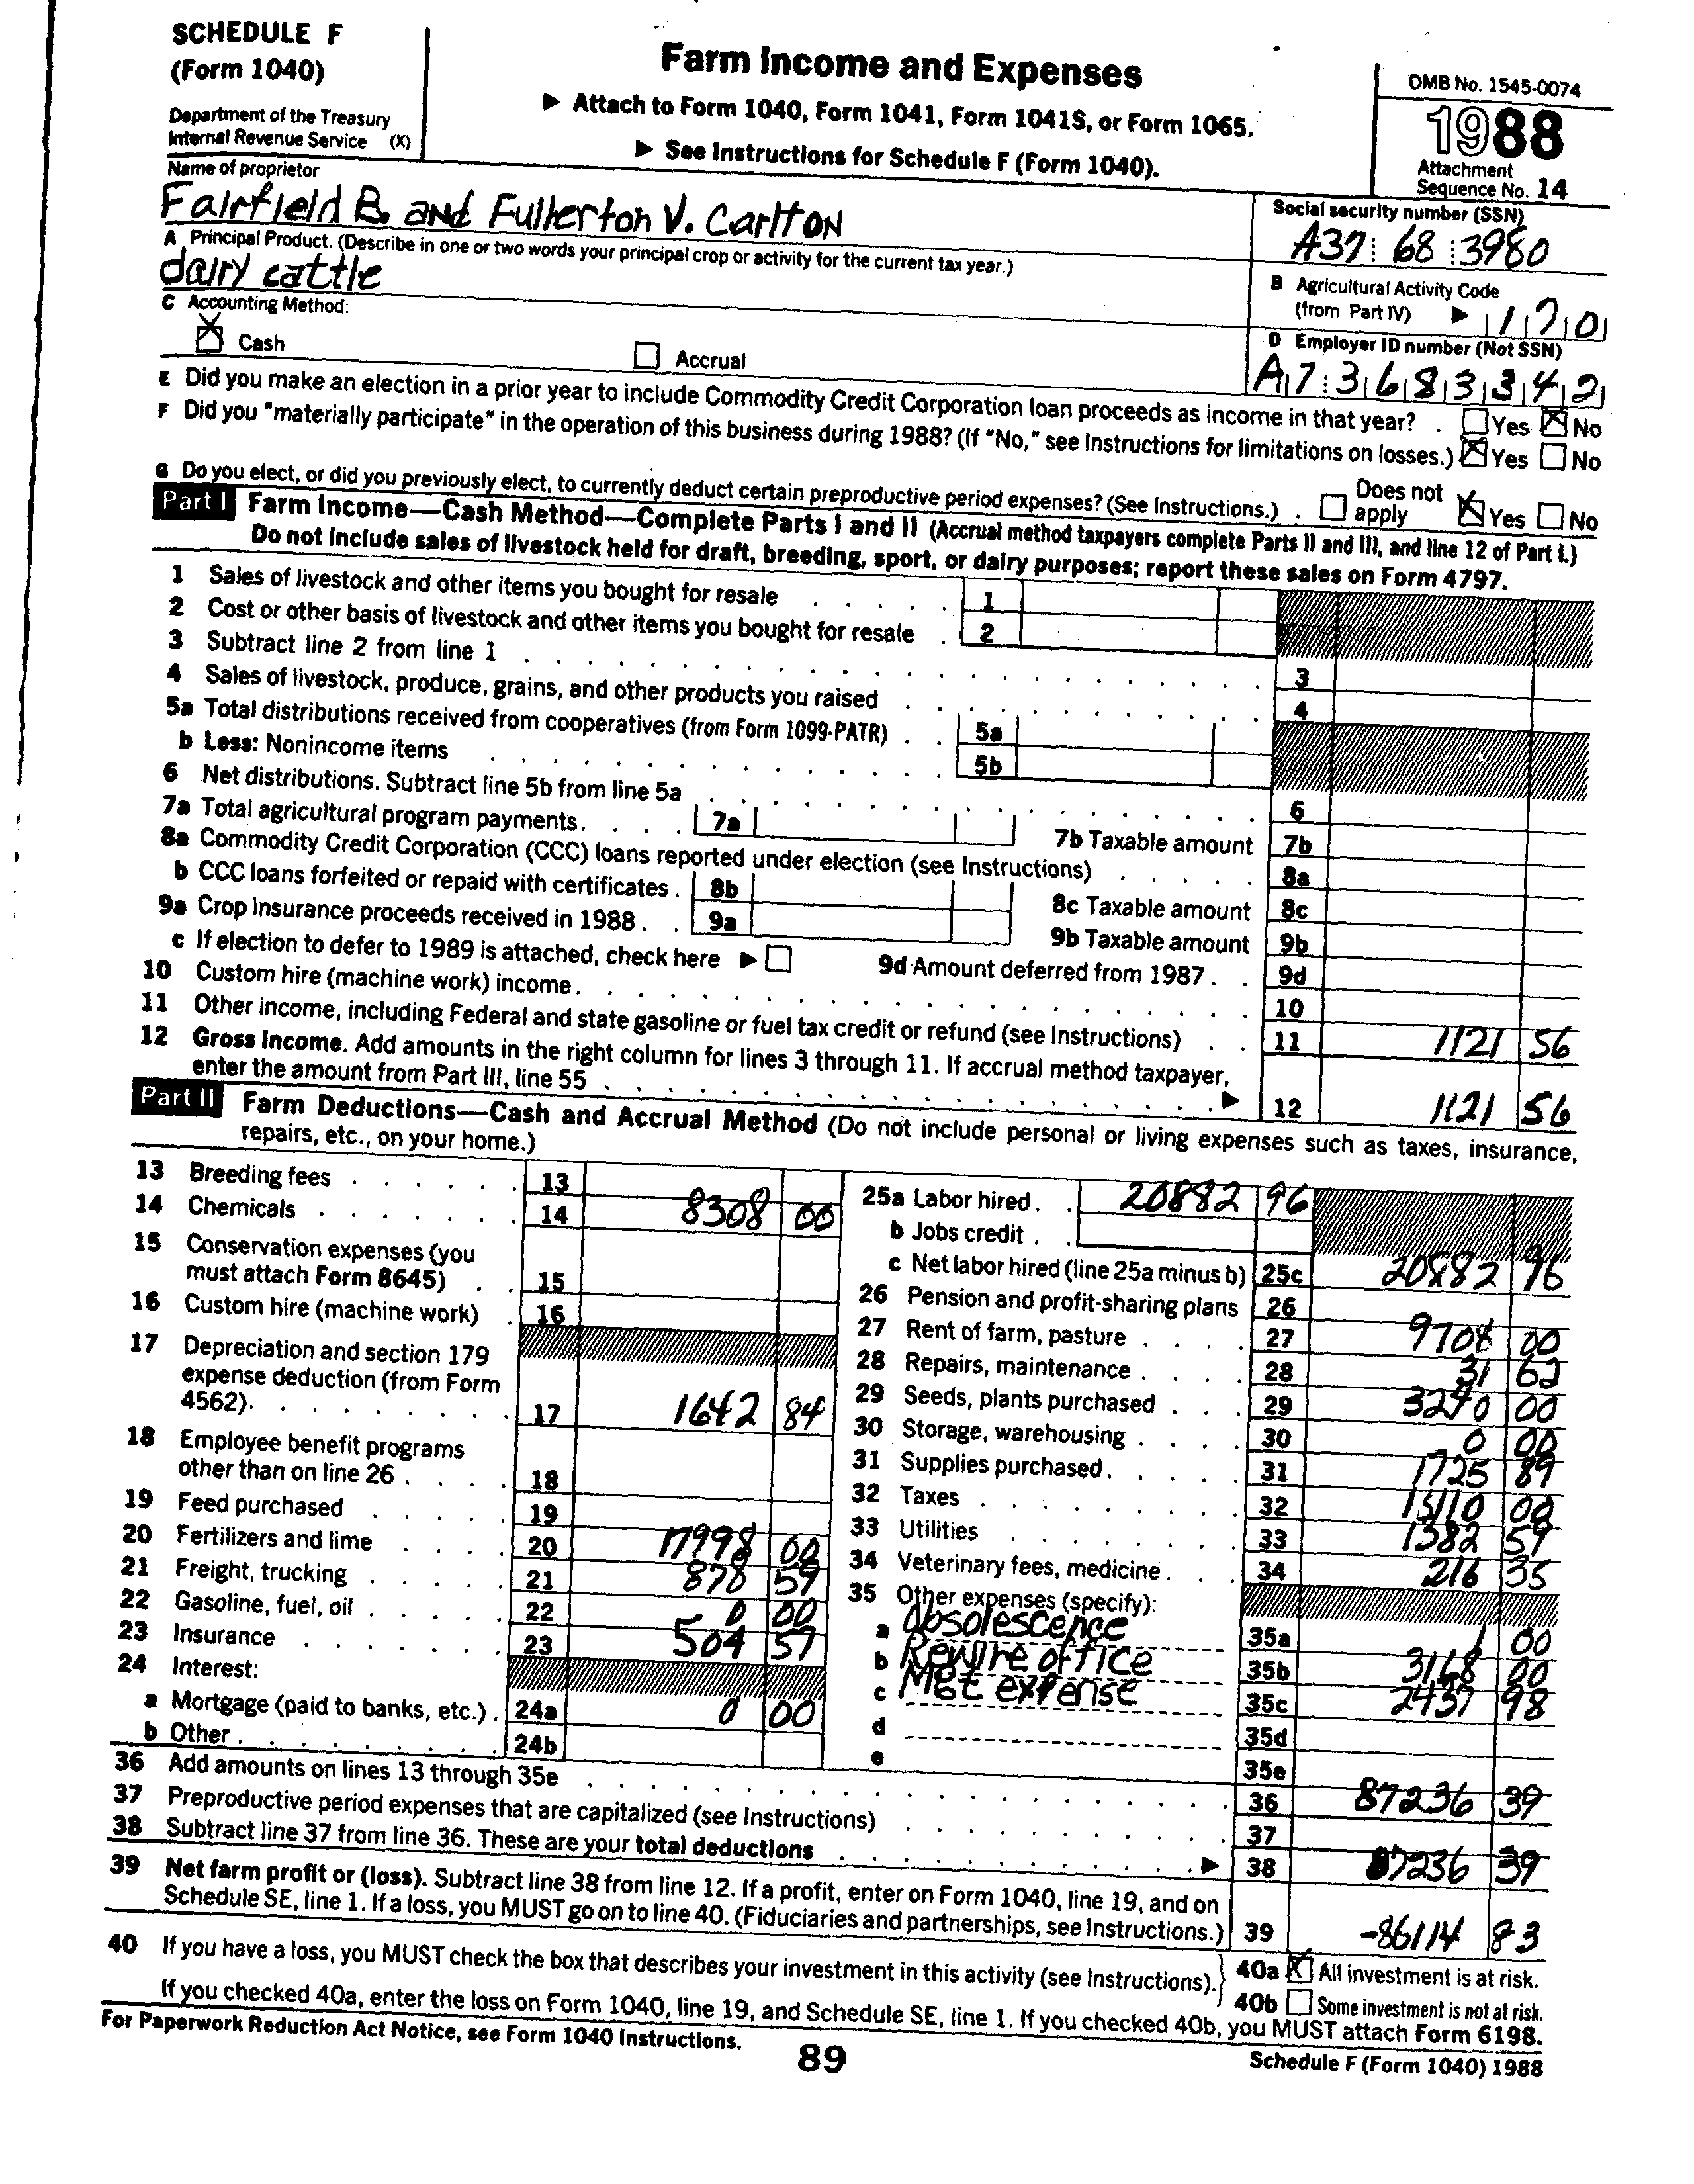 SCHEDULE F
(Form 1040)
Department of the Treasury
Internal Revenue Service (X)
Farm Income and Expenses
▶ Attach to Form 1040, Form 1041, Form 1041S, or Form 1065.
▶ See Instructions for Schedule F (Form 1040).
OMB No. 1545-0074
1988
Attachment
Sequence No. 14
Name of proprietor
Fairfield B. and Fullerton V. Carlton
Social security number (SSN)
A37 68 3980
A Principal Product. (Describe in one or two words your principal crop or activity for the current tax year.)
dairy cattle
B Agricultural Activity Code
(from Part IV) ▶ 1 7 0
C Accounting Method:
Cash Accrual
D Employer ID number (Not SSN)
A 7 3 6 8 3 3 4 2
E Did you make an election in a prior year to include Commodity Credit Corporation loan proceeds as income in that year? . Yes No
F Did you "materially participate" in the operation of this business during 1988? (If "No," see Instructions for limitations on losses.) Yes No
G Do you elect, or did you previously elect, to currently deduct certain preproductive period expenses? (See Instructions.) . Does not apply Yes No
Part I Farm Income—Cash Method—Complete Parts I and II (Accrual method taxpayers complete Parts II and III, and line 12 of Part I.)
Do not include sales of livestock held for draft, breeding, sport, or dairy purposes; report these sales on Form 4797.
1 Sales of livestock and other items you bought for resale 1
2 Cost or other basis of livestock and other items you bought for resale 2
3 Subtract line 2 from line 1 3
4 Sales of livestock, produce, grains, and other products you raised 4
5a Total distributions received from cooperatives (from Form 1099-PATR) 5a
b Less: Nonincome items 5b
6 Net distributions. Subtract line 5b from line 5a 6
7a Total agricultural program payments. 7a 7b Taxable amount 7b
8a Commodity Credit Corporation (CCC) loans reported under election (see Instructions) 8a
b CCC loans forfeited or repaid with certificates. 8b 8c Taxable amount 8c
9a Crop insurance proceeds received in 1988. 9a 9b Taxable amount 9b
c If election to defer to 1989 is attached, check here ▶ 9d Amount deferred from 1987. 9d
10 Custom hire (machine work) income. 10
11 Other income, including Federal and state gasoline or fuel tax credit or refund (see Instructions) 11 1121 56
12 Gross Income. Add amounts in the right column for lines 3 through 11. If accrual method taxpayer,
enter the amount from Part III, line 55 ▶ 12 1121 56
Part II Farm Deductions—Cash and Accrual Method (Do not include personal or living expenses such as taxes, insurance,
repairs, etc., on your home.)
13 Breeding fees 13
14 Chemicals 14 8308 00
15 Conservation expenses (you
must attach Form 8645) 15
16 Custom hire (machine work) 16
17 Depreciation and section 179
expense deduction (from Form
4562). 17 1642 84
18 Employee benefit programs
other than on line 26 18
19 Feed purchased 19
20 Fertilizers and lime 20 17998 00
21 Freight, trucking 21 878 59
22 Gasoline, fuel, oil 22 0 00
23 Insurance 23 504 57
24 Interest:
a Mortgage (paid to banks, etc.) 24a 0 00
b Other 24b
25a Labor hired. 20882 96
b Jobs credit
c Net labor hired (line 25a minus b) 25c 20882 96
26 Pension and profit-sharing plans 26
27 Rent of farm, pasture 27 9708 00
28 Repairs, maintenance 28 31 62
29 Seeds, plants purchased 29 3240 00
30 Storage, warehousing 30 0 00
31 Supplies purchased. 31 1725 89
32 Taxes 32 15110 00
33 Utilities 33 1382 59
34 Veterinary fees, medicine. 34 216 35
35 Other expenses (specify):
a Obsolescence 35a 1 00
b Rewire office 35b 3168 00
c Mgt expense 35c 2437 98
d 35d
e 35e
36 Add amounts on lines 13 through 35e 36 87236 39
37 Preproductive period expenses that are capitalized (see Instructions) 37
38 Subtract line 37 from line 36. These are your total deductions ▶ 38 87236 39
39 Net farm profit or (loss). Subtract line 38 from line 12. If a profit, enter on Form 1040, line 19, and on
Schedule SE, line 1. If a loss, you MUST go on to line 40. (Fiduciaries and partnerships, see Instructions.) 39 -86114 83
40 If you have a loss, you MUST check the box that describes your investment in this activity (see Instructions). 40a All investment is at risk.
40b Some investment is not at risk.
If you checked 40a, enter the loss on Form 1040, line 19, and Schedule SE, line 1. If you checked 40b, you MUST attach Form 6198.
For Paperwork Reduction Act Notice, see Form 1040 Instructions.
89
Schedule F (Form 1040) 1988